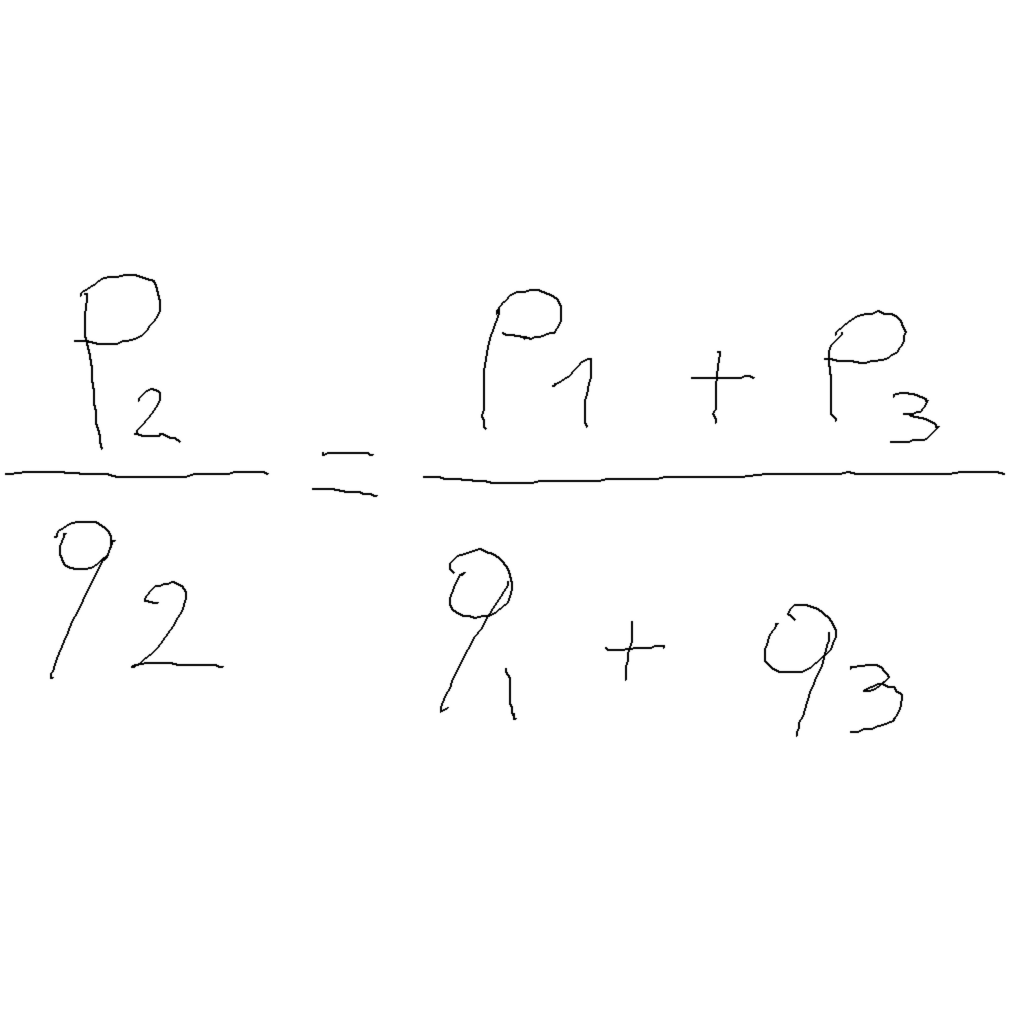 p₂/q₂ = (p₁ + p₃)/(q₁ + q₃)